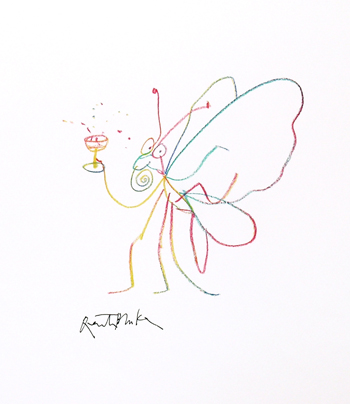 Quentin Blake